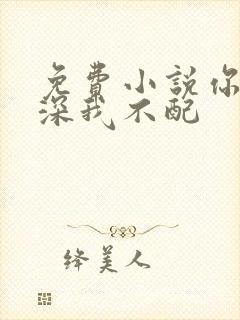 免費小說你
深我不配
绛美人